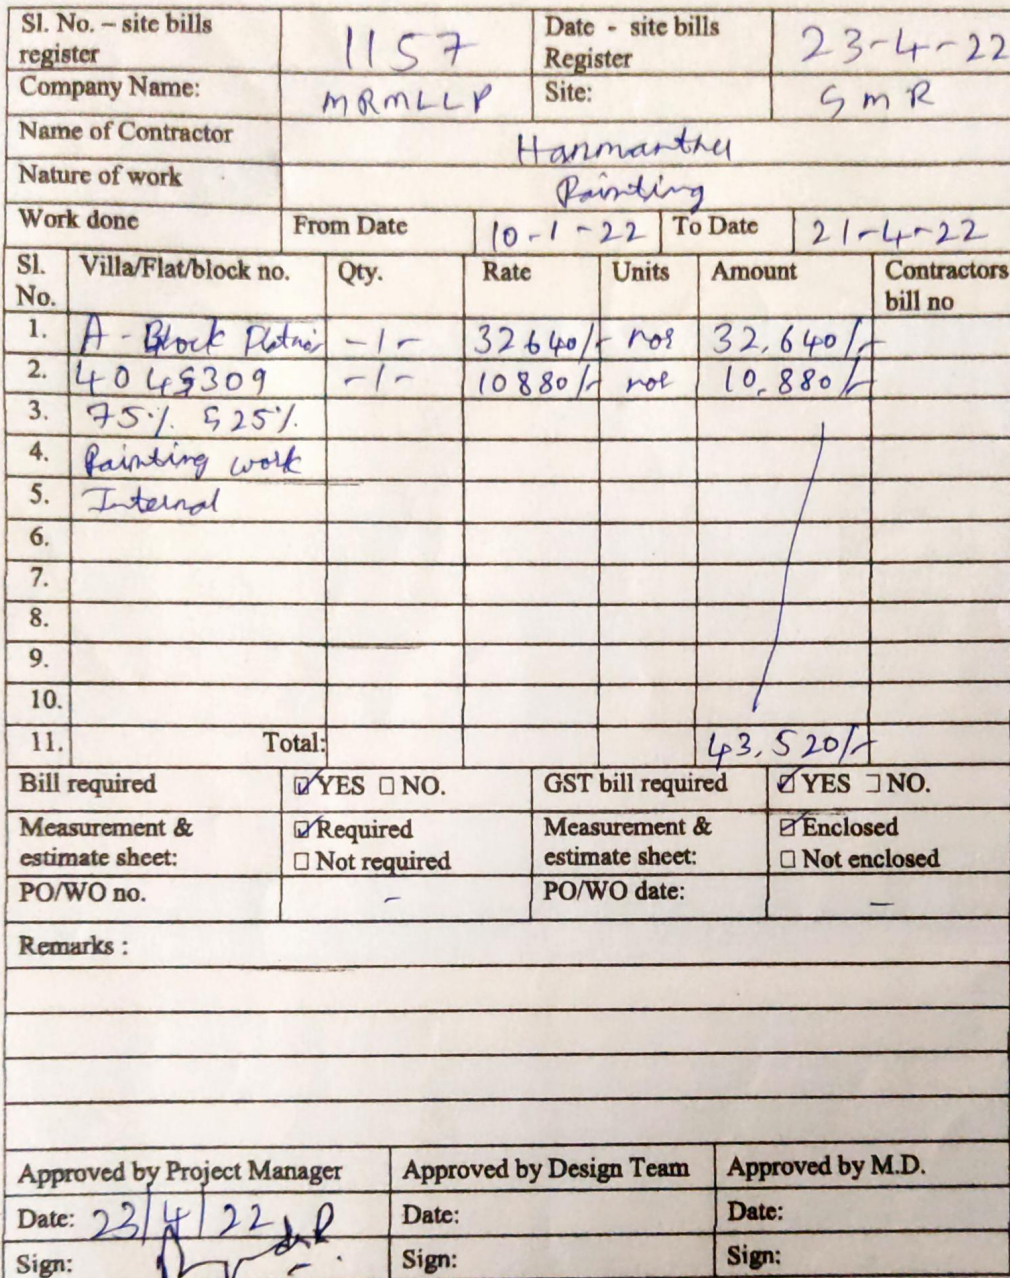 Sl. No. – site bills register 1157 Date - site bills Register 23-4-22
Company Name: MRMLLP Site: GMR
Name of Contractor Hanmanthu
Nature of work Painting
Work done From Date 10-1-22 To Date 21-4-22
Sl. No. Villa/Flat/block no. Qty. Rate Units Amount Contractors bill no
1. A - Block -1- 32640/- nos 32,640/-
2. 404&309 -1- 10880/- nos 10,880/-
3. 75% & 25%
4. Painting work
5. Internal
6.
7.
8.
9.
10.
11. Total: 43,520/-
Bill required ☑ YES ☐ NO. GST bill required ☑ YES ☐ NO.
Measurement & estimate sheet: ☑ Required Measurement & estimate sheet: ☑ Enclosed
☐ Not required ☐ Not enclosed
PO/WO no. - PO/WO date: -
Remarks :
Approved by Project Manager Approved by Design Team Approved by M.D.
Date: 23/4/22 Date: Date:
Sign: Sign: Sign: